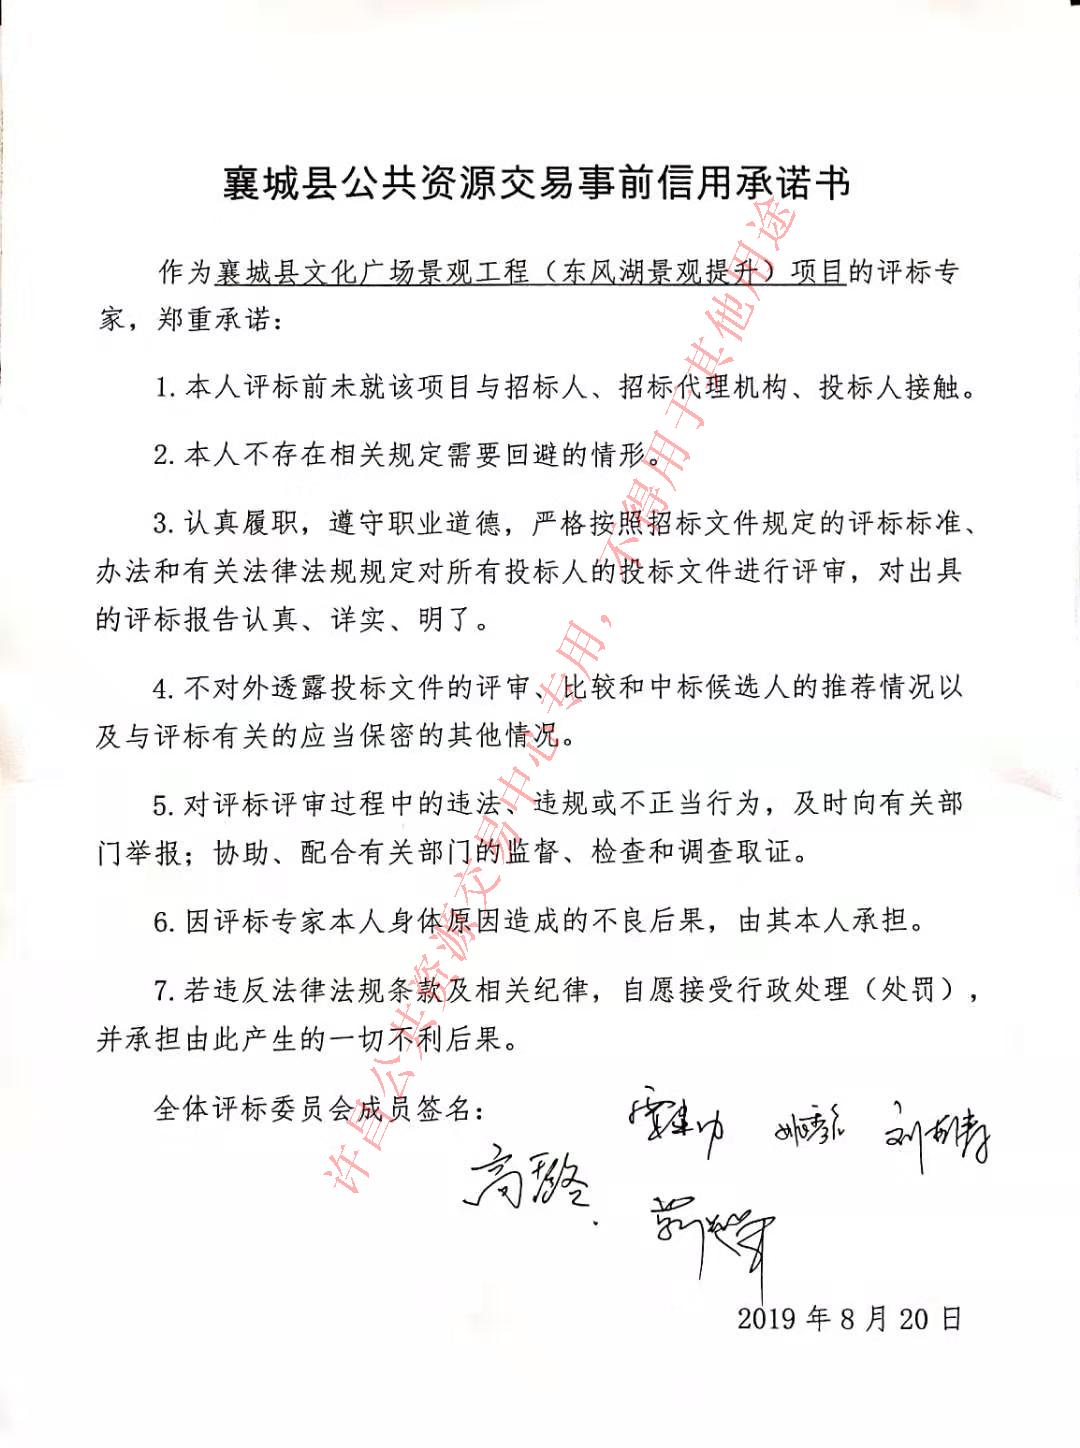 襄城县公共资源交易事前信用承诺书
作为襄城县文化广场景观工程（东风湖景观提升）项目的评标专
家，郑重承诺：
1.本人评标前未就该项目与招标人、招标代理机构、投标人接触。
2.本人不存在相关规定需要回避的情形。
3.认真履职，遵守职业道德，严格按照招标文件规定的评标标准、
办法和有关法律法规规定对所有投标人的投标文件进行评审，对出具
的评标报告认真、详实、明了。
4.不对外透露投标文件的评审、比较和中标候选人的推荐情况以
及与评标有关的应当保密的其他情况。
5.对评标评审过程中的违法、违规或不正当行为，及时向有关部
门举报；协助、配合有关部门的监督、检查和调查取证。
6.因评标专家本人身体原因造成的不良后果，由其本人承担。
7.若违反法律法规条款及相关纪律，自愿接受行政处理（处罚），
并承担由此产生的一切不利后果。
全体评标委员会成员签名：
2019年8月20日
许昌公共资源交易中心专用，不得用于其他用途